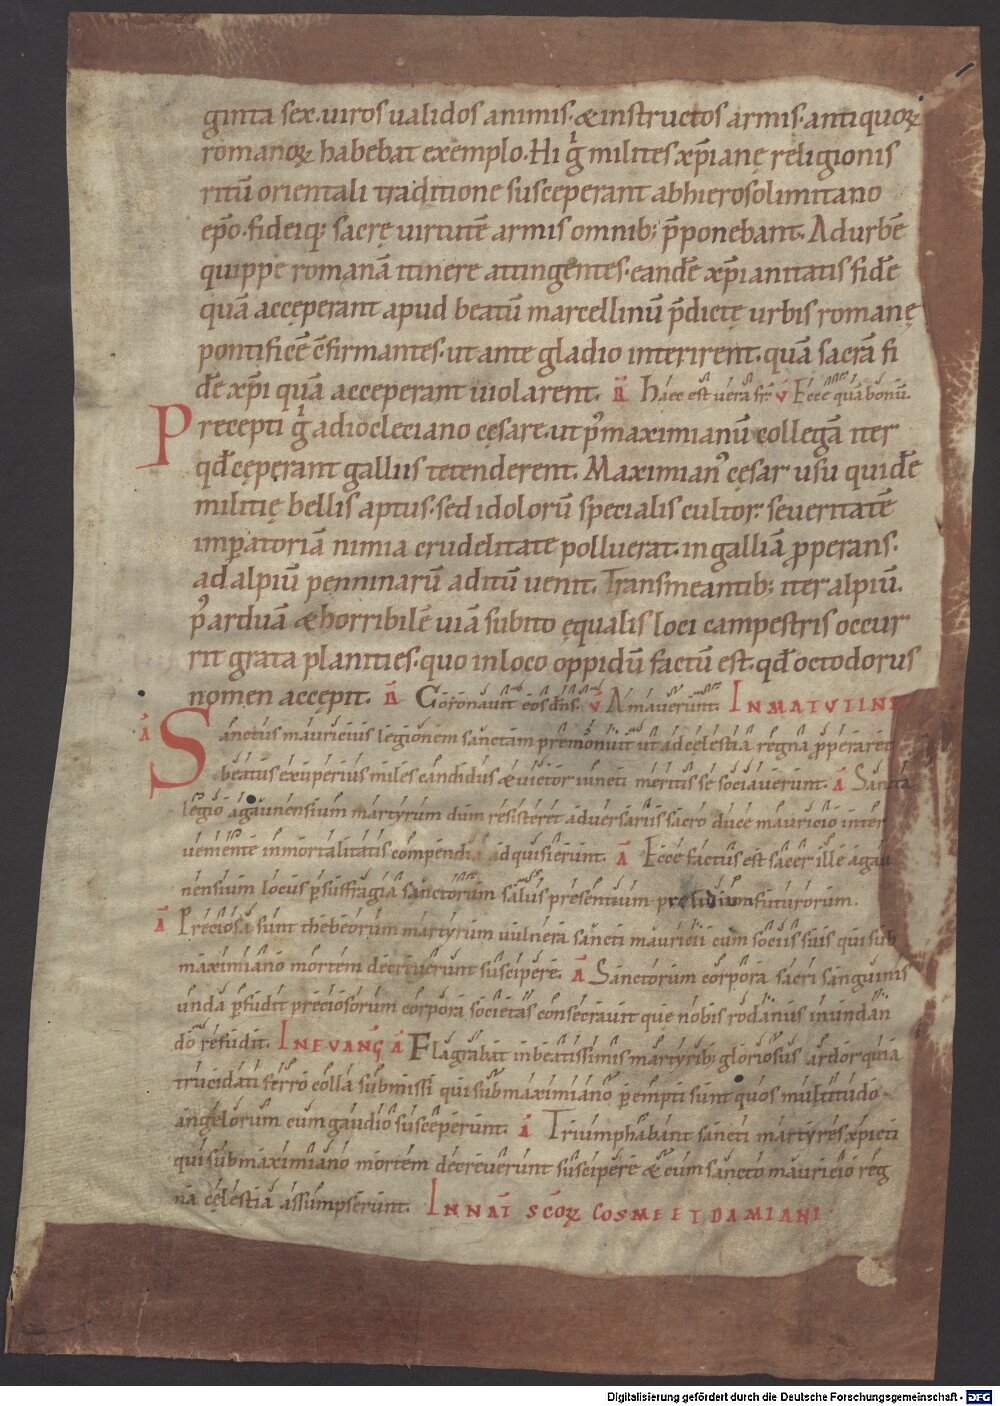 ginta sex. uiros ualidos animis. & instructos armis. antiquoꝝ
romanoꝝ habebat exemplo. Hi g̍ milites xp̄ianę religionis
ritū orientali traditione susceperant ab hierosolimitano
ep̄o. fideiq; sacrę uirtutē armis omnib; p̄ponebant. Ad urbē
quippe romanā itinere attingentes. eandē xp̄ianitatis fidē
quā accęperant apud beatū marcellinū p̄dictę urbis romanę
pontificē c̄firmantes. ut ante gladio interirent. quā sacrā fi
dē xp̄i quā acceperant uiolarent. R̄ Haec est uera fr̄. V Ecce quā bonū.
Precepti g̍ a diocleciano cęsare. ut p̍ maximianū collegā iter
qđ cęperant gallus tetenderent. Maximian᾽ cęsar usu quidē
militię bellis aptus. sed idolorū specialis cultor. seueritatē
imperatoriā nimia crudelitate polluerat. in galliā ꝓperans.
ad alpiū penninarū aditū uenit. Transmeantib; iter alpiū.
p᾽ arduā & horribilē uiā subito ęqualis loci campestris occur
rit grata planities. quo in loco oppidū factū est. qđ octodorus
nomen accępit. R̄ Coronauit eos dn̄s. V Amauerunt. IN MATUTINI
ā Sanctus mauricius legionem sanctam premonuit ut ad cęlestia regna ꝓperaret
beatus exuperius miles candidus & uictor iuncti meritis se sociauerunt. ā Sancta
legio agaunensium martyrum dum resisteret aduersariis sacro duce mauricio inter
ueniente inmortalitatis compendia adquisierunt. ā Ecce factus est sacer ille agau
nensium locus ꝑ suffragia sanctorum salus presentium presidium futurorum.
ā Preciosa sunt thebeorum martyrum uulnera sancti mauricii cum sociis suis qui sub
maximiano mortem decreuerunt suscipere. ā Sanctorum corpora sacri sanguinis
unda ꝑfudit preciosorum corpora societas consecrauit que nobis rodanus inundan
do refudit. IN EVANG ā Flagrabat in beatissimis martyrib; gloriosus ardor quia
trucidati ferro colla submissi qui sub maximiano perempti sunt quos multitudo
angelorum cum gaudio susceperunt. ā Triumphabant sancti martyres xpicti
qui sub maximiano mortem decreuerunt suscipere & cum sancto mauricio reg
na cęlestia assumpserunt. IN NAT̄ SC̄OꝜ COSME ET DAMIANI.
Digitalisierung gefördert durch die Deutsche Forschungsgemeinschaft - DFG